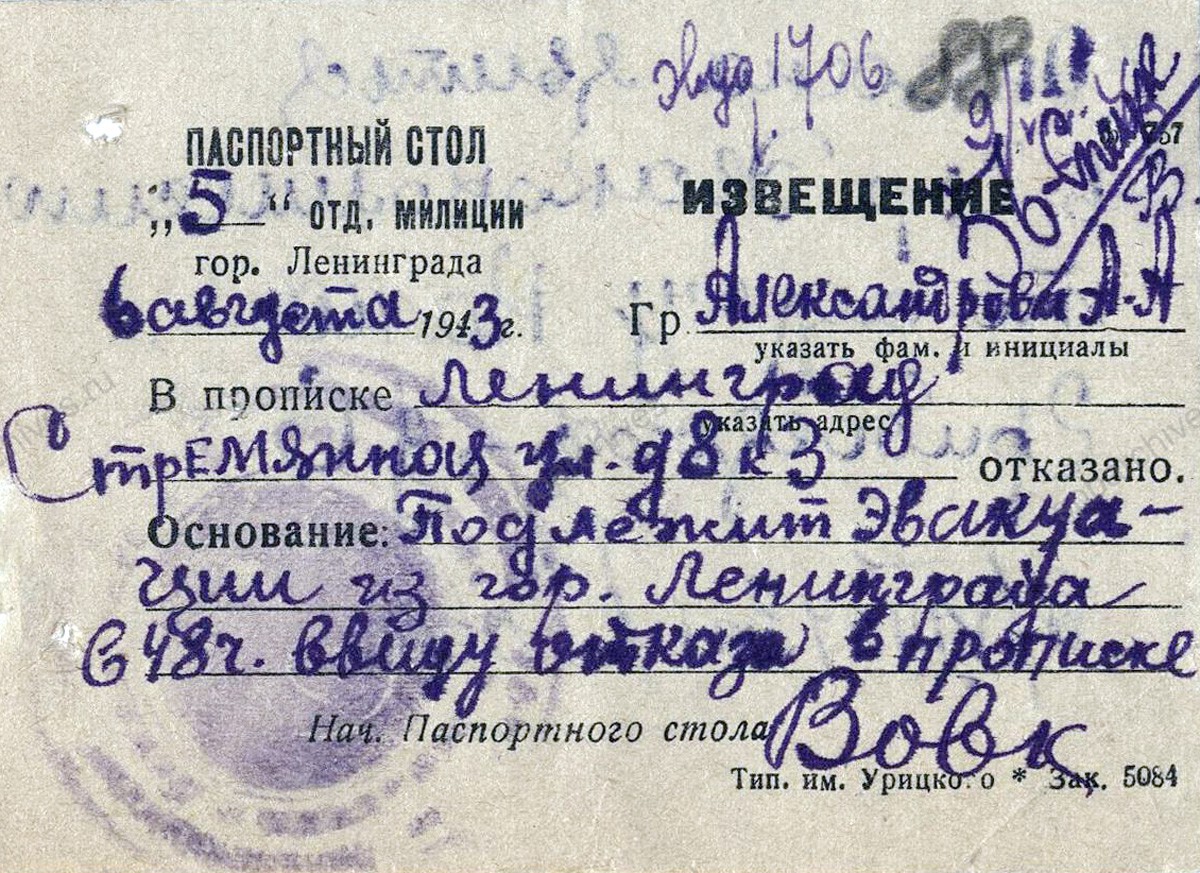 1706
ПАСПОРТНЫЙ СТОЛ
„5“ ОТД. МИЛИЦИИ
гор. Ленинграда
6 августа 1943 г.
ИЗВЕЩЕНИЕ
Гр Александрова А.А
указать фам. и инициалы
В прописке Ленинград
указать адрес
Стремянная ул. д 8 к 3 отказано.
Основание: Подлежит Эвакуа-
ции из гор. Ленинграда
в 48 ч. ввиду отказа в прописке
Нач. Паспортного стола Вовк
Тип. им. Урицкого * Зак. 5084